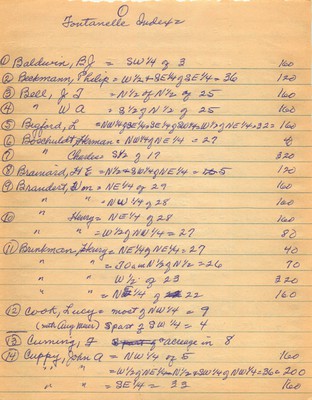 ①
Fontanelle Index
① Baldwin, B J = SW¼ of 3 160
② Beckmann, Philip = W½ + SE¼ of SE¼ = 36 120
③ Bell, J T = N½ of N½ of 25 160
④ " W A = S½ of N½ of 25 160
⑤ Bigford, L = NW¼ of SE¼ + SE¼ of SW¼ + W½ of NE¼ = 32 = 160
⑥ Boschuldt, Herman = NW¼ of NE¼ = 27
⑦ " Charles = S½ of 17 320
⑧ Brainard, H E = N½ + SW¼ of NE¼ = 5 120
⑨ Brandert, Wm = NE¼ of 29 160
" " = NW¼ of 28 160
⑩ " Henry = NE¼ of 28 160
" " = W½ of NW¼ = 27 80
⑪ Brinkman, Henry = NE¼ of NE¼ = 27 40
" " = 70 a in N½ of N½ = 26 70
" " W½ of 23 320
" " = NE¼ of 22 160
⑫ Cook, Lucy = most of NW¼ = 9
(with Aug Meier) S part of SW¼ = 4
⑬ Cuming, J acreage in 8
⑭ Cuppy, John A = NW¼ of 5 160
" " = W½ of NE¼ + N½ + SW¼ of NW¼ = 36 = 200
" " = SE¼ = 33 160